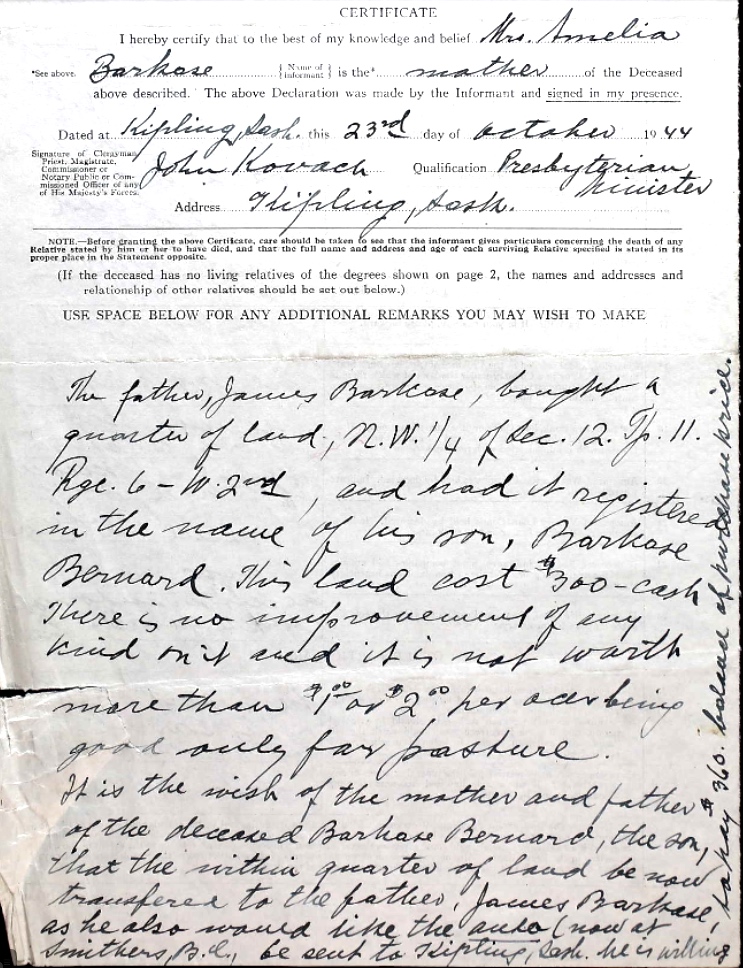 CERTIFICATE
I hereby certify that to the best of my knowledge and belief Mrs. Amelia
*See above. Barkase {Name of informant} is the* mother of the Deceased
above described. The above Declaration was made by the Informant and signed in my presence.
Dated at Kipling, Sask. this 23rd day of October 1944
Signature of Clergyman,
Priest, Magistrate,
Commissioner or
Notary Public or Com-
missioned Officer of any
of His Majesty's Forces.
John Kovach Qualification Presbyterian
Minister
Address Kipling, Sask.
NOTE.—Before granting the above Certificate, care should be taken to see that the informant gives particulars concerning the death of any
Relative stated by him or her to have died, and that the full name and address and age of each surviving Relative specified is stated in its
proper place in the Statement opposite.
(If the deceased has no living relatives of the degrees shown on page 2, the names and addresses and
relationship of other relatives should be set out below.)
USE SPACE BELOW FOR ANY ADDITIONAL REMARKS YOU MAY WISH TO MAKE
The father, James Barkase, bought a
quarter of land, N.W. 1/4 of Sec. 12. Tp. 11.
Rge. 6 - W. 2nd, and had it registered
in the name of his son, Barkase
Bernard. This land cost $300 - cash
There is no improvement of any
kind on it and it is not worth
more than $1.00 or $2.00 per acer being
good only for pasture.
It is the wish of the mother and father
of the deceased Barkase Bernard, the son,
that the within quarter of land be now
transfered to the father, James Barkase,
as he also would like the auto (now at
Smithers, B.C., be sent to Kipling, Sask. he is willing
to pay $360. balance of purchase price.